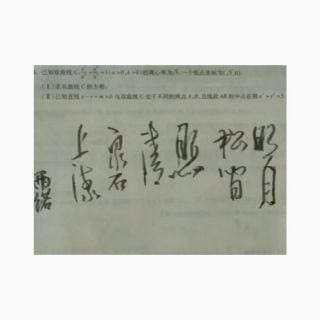 已知双曲线C:x²/a²-y²/b²=1(a>0,b>0)的离心率为√3,一个焦点坐标为(√3,0).
(Ⅰ)求双曲线C的方程;
(Ⅱ)已知直线x-y+m=0与双曲线C交于不同的两点A,B,且线段AB的中点在圆x²+y²=5
明月
松间
照
清
泉石
上流
雨诺